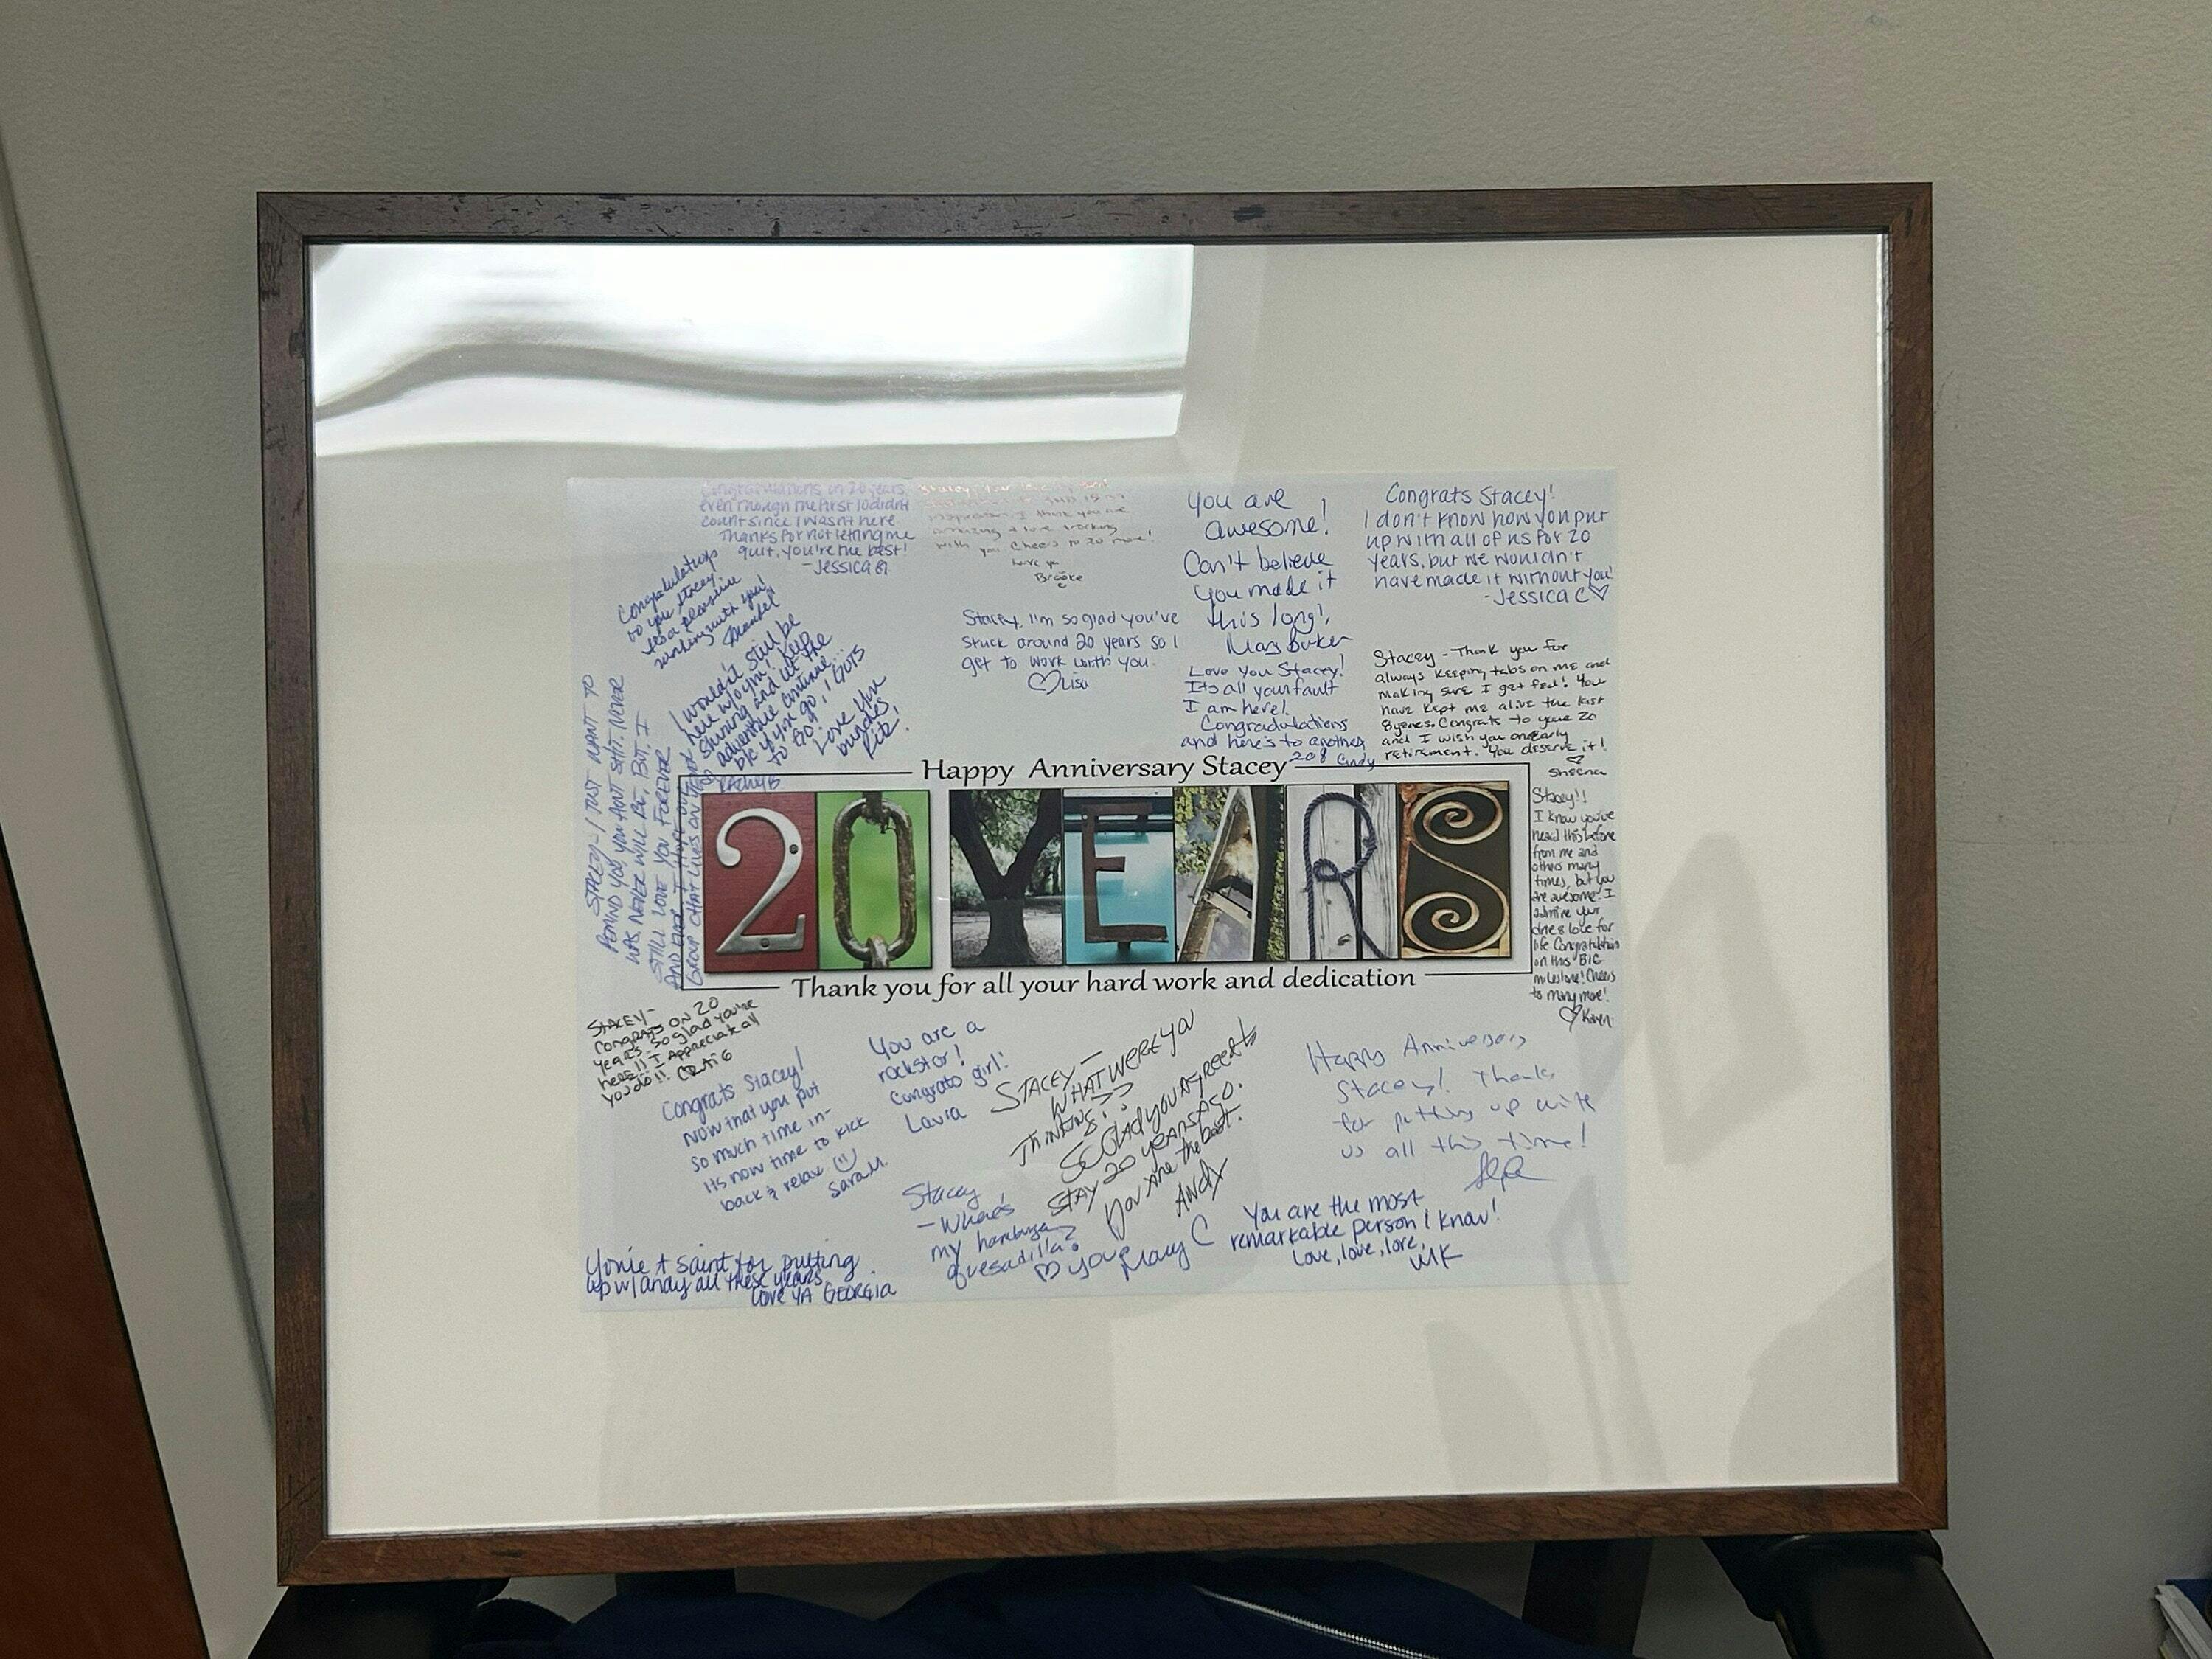 Congratulations on 20 years,
even though the first 10 didnt
count since I wasn't here
Thanks for not letting me
quit, you're the best!
-Jessica B.
inspiration. I think you are
amazing & love working
with you. Cheers to 20 more!
Love ya
Brooke
You are
awesome!
Can't believe
you made it
this long!
Mary Baker
Congrats Stacey!
I don't know how you put
up with all of us for 20
years, but we wouldn't
have made it without you!
-Jessica C ♡
Congradulations
to you Stacey
its a pleasure
working with you!
I wouldn't still be
here w/o you! Keep
shining and let the
adventure continue...
b/c if you go, I GOTS
to Go!!
Love you
bunches
Rita!
Stacey, I'm so glad you've
stuck around 20 years so I
get to work with you.
♡Lisa
Love You Stacey!
Its all your fault
I am here!
Congradulations
and here's to another
20! Cindy
Stacey - Thank you for
always keeping tabs on me and
making sure I get fed! You
have kept me alive the last
8 years. Congrats to your 20
and I wish you an early
retirement. You deserve it!
♡
Sheena
STACEY - I JUST WANT TO
REMIND YOU, YOU AINT SHIT. NEVER
WAS, NEVER WILL BE. BUT I
STILL LOVE YOU FOREVER
AND EVER
GROUP CHAT LIVES ON
Happy Anniversary Stacey
20 YEARS
Thank you for all your hard work and dedication
Stacey!!
I know you've
heard this before
from me and
others many
times, but you
are awesome! I
admire your
drive & love for
life. Congratulations
on this BIG
milestone! Cheers
to many more!
♡ Karen
STACEY-
CONGRATS ON 20
YEARS. So glad you're
here!! I Appreciate all
you do!! CRAIG
Congrats Stacey!
Now that you put
so much time in-
its now time to kick
back & relax ☺
Sara M.
You are a
rockstar!
Congrats girl!
Laura
STACEY-
WHAT WERE YA
THINKING??
SO GLAD YOU AGREED to
STAY 20 YEARS AGO.
You are the best.
ANDY
Happy Anniversary
Stacey! Thanks
for putting up with
us all this time!
Stacey
- Where's
my hamburger
quesadilla?
♡ you Mary C
You are the most
remarkable person I know!
Love, love, love,
MK
You're A saint for putting
up w/ andy all these years.
Love YA GEORGIA